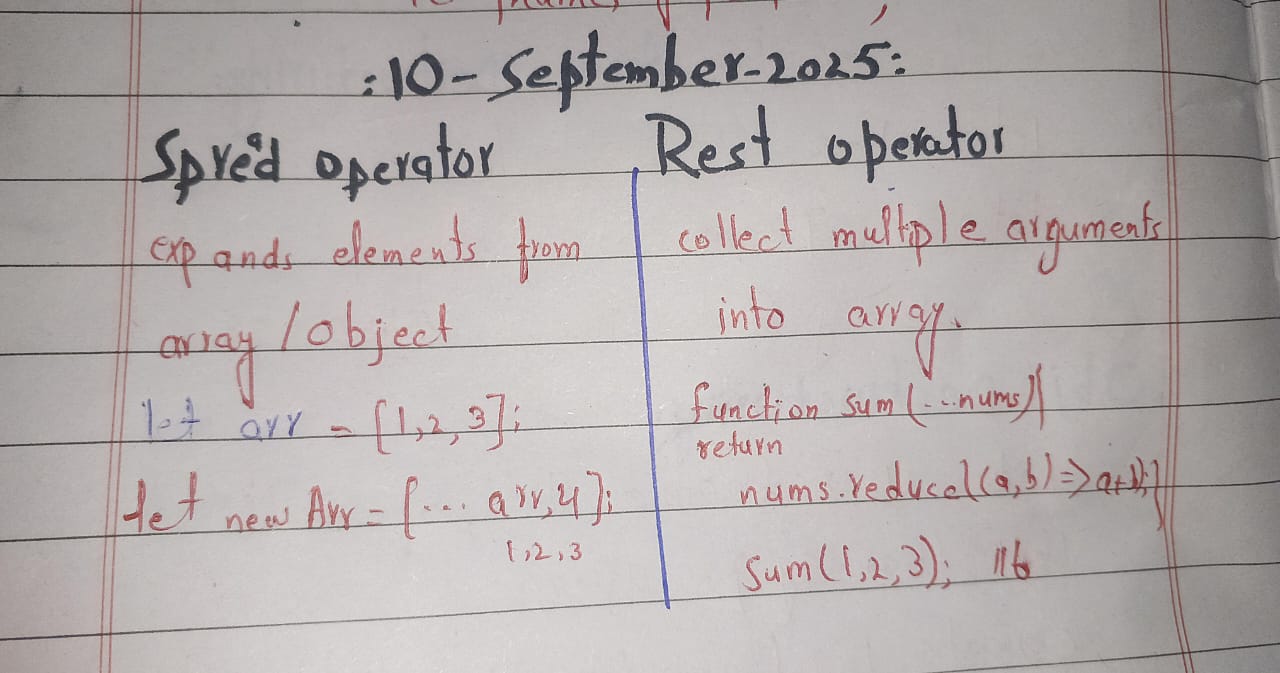 :10-September-2025:
Spread operator
expands elements from
array/object
let arr = [1,2,3];
let new Arr = [... arr,4];
1,2,3
Rest operator
collect multiple arguments
into array.
function sum(...nums){
return
nums.reduce((a,b)=>a+b);}
sum(1,2,3); //6